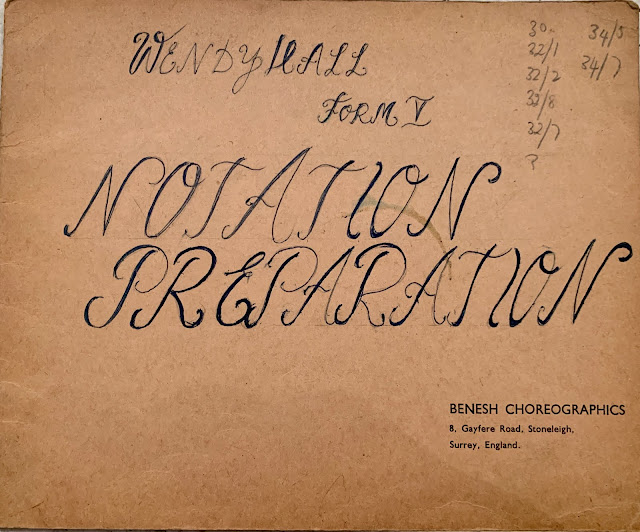 WENDY HALL
FORM V
30.
32/1
32/2
33/8
32/7
?
34/5
34/7
NOTATION
PREPARATION
BENESH CHOREOGRAPHICS
8, Gayfere Road, Stoneleigh,
Surrey, England.